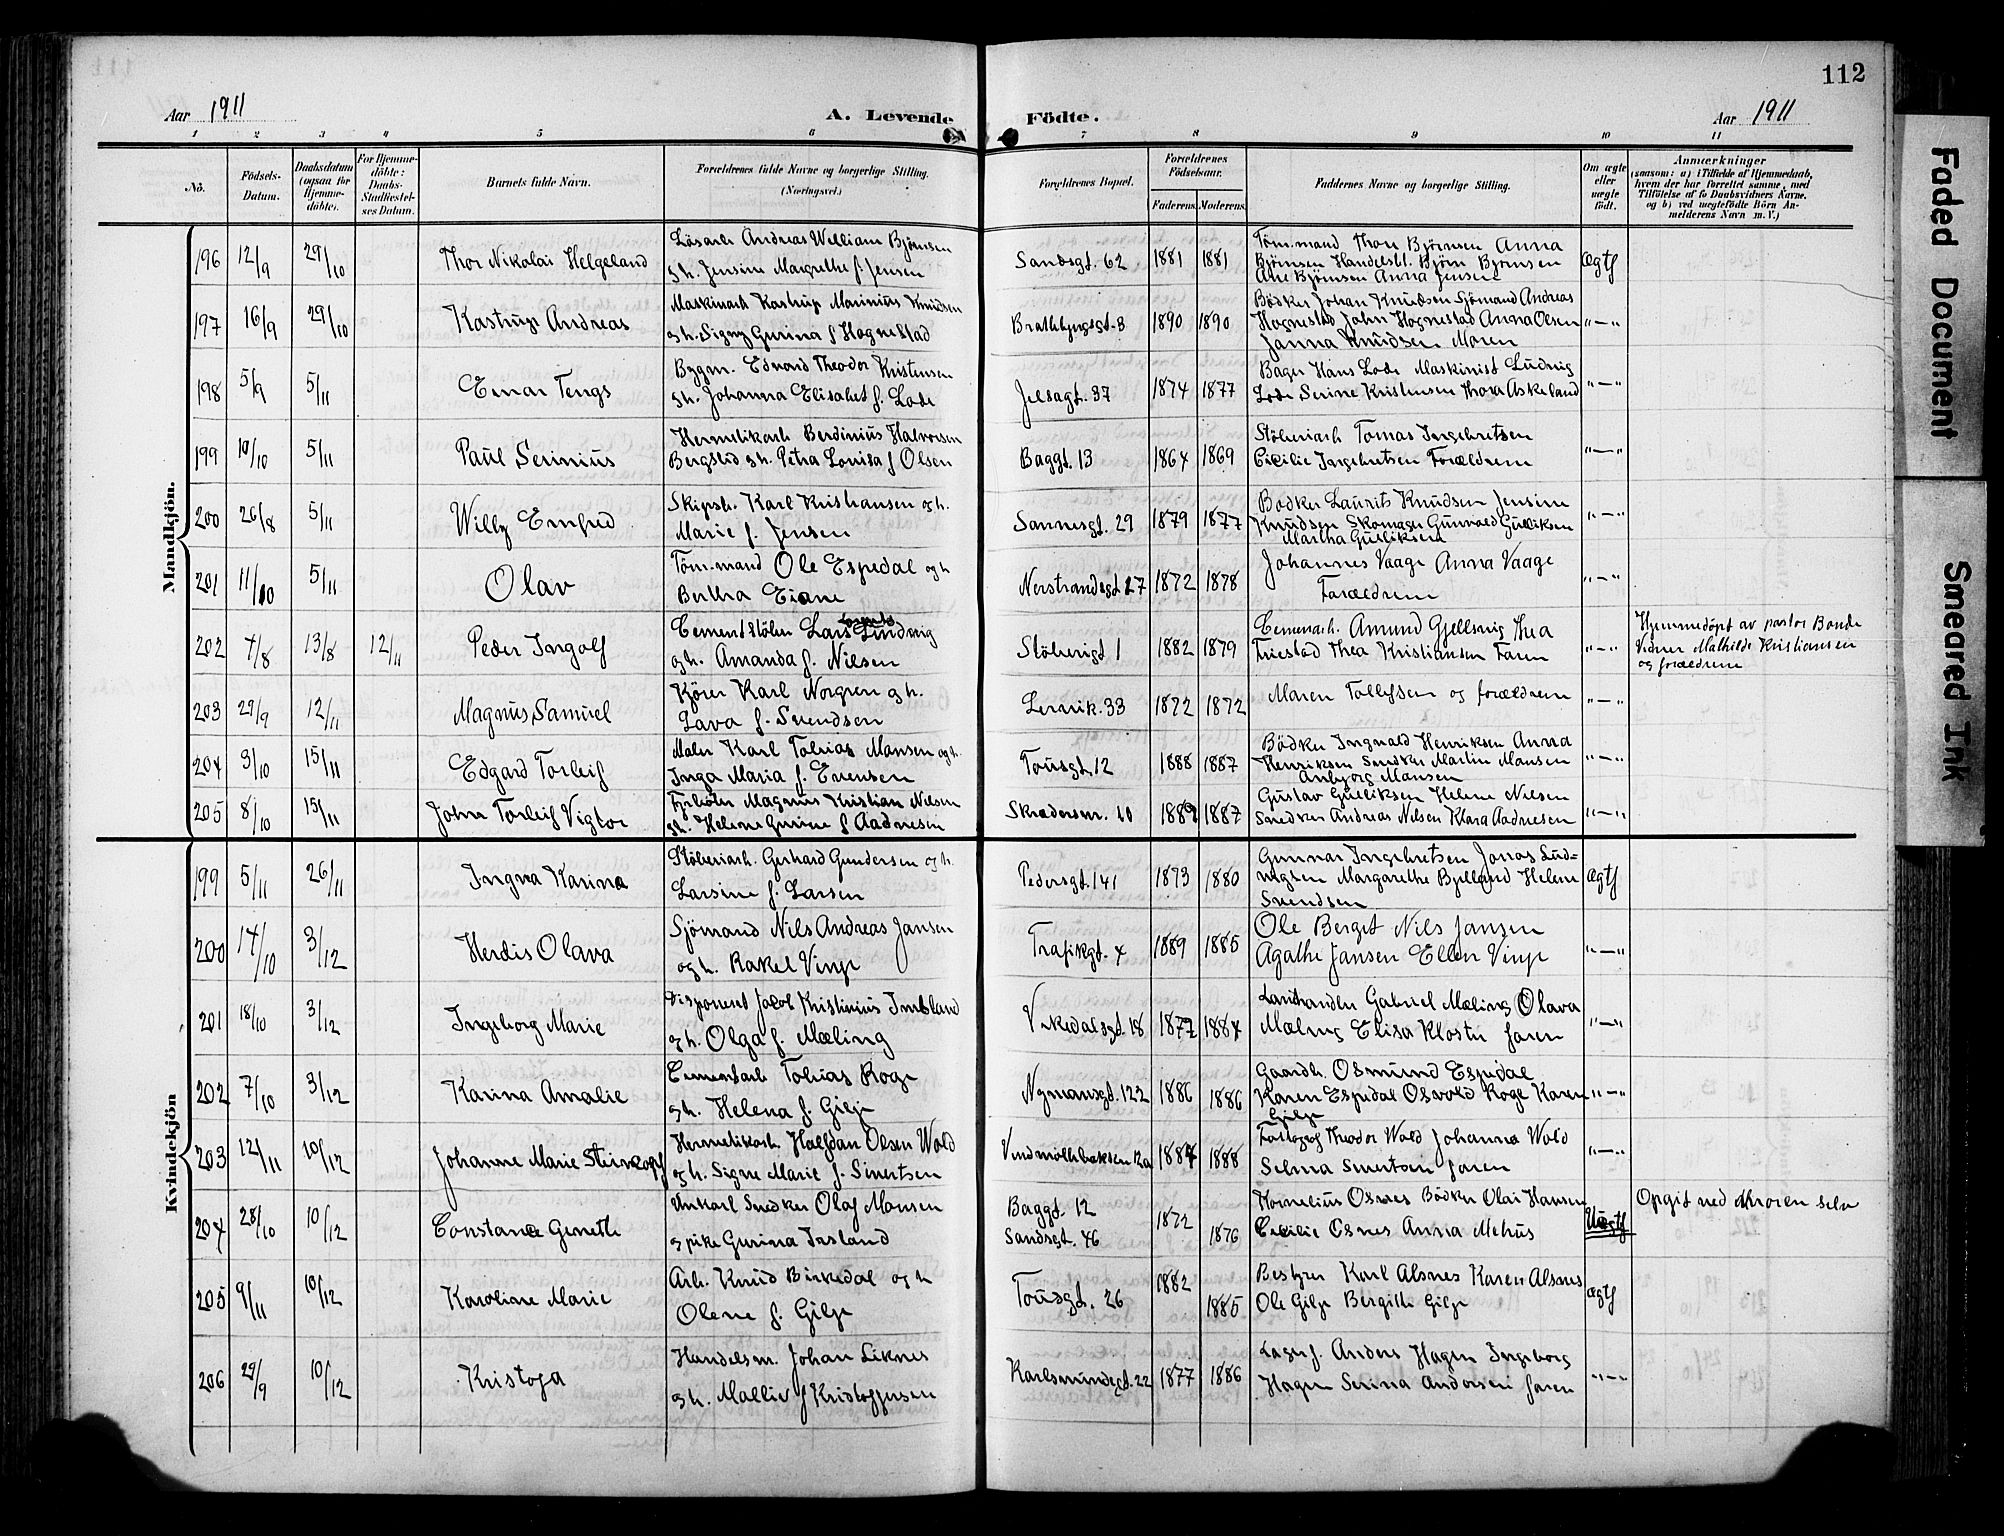 112
Aar 1911
A. Levende Födte.
Aar 1911
1 2 3 4 5 6 7 8 9 10 11
No.
Födsels-
Datum.
Daabsdatum
(ogsaa for
Hjemme-
döbte).
For Hjemme-
döbte:
Daabs-
Stadfæstel-
ses Datum.
Barnets fulde Navn.
Forældrenes fulde Navne og borgerlige Stilling.
(Næringsvei.)
Forældrenes Bopæl.
Forældrenes
Födselsaar.
Faderens.
Moderens.
Faddernes Navne og borgerlige Stilling.
Om ægte
eller
uægte
födt.
Anmærkninger
(saasom: a) i Tilfælde af Hjemmedaab,
hvem der har forrettet samme, med
Tilföielse af to Daabsvidners Navne.
og b) ved uægtefödte Börn An-
melderens Navn m. V.)
Mandkjön.
196 12/9 29/10 Thor Nikolai Helgeland
Lösarb Andreas William Björnsen
og h. Jensine Margrethe f. Jensen
Sandsgt. 62 1881 1881
Töm.mand Thore Björnsen Anna
Björnsen Handelsbt. Björn Björnsen
Ane Björnsen Anna Jensen
Ægtf
197 16/9 29/10 Kastrup Andreas
Maskinarb Kastrup Marinius Knudsen
og h. Signy Gurina f Hognestad
1890 1890
Bödker Johan Knudsen Sjömand Andreas
Hognestad John Hognestad Anna Olsen
Janna Knudsen Maren
"—"
198 5/9 5/11 Einar Tengs
Bygm. Edvard Theodor Kristensen
og h. Johanna Elisabet f. Lode
Jelsagt. 37 1874 1877
Bager Hans Lode Maskinist Ludvig
Lode Serine Kristensen Thora Askeland
"—"
199 10/10 5/11 Paul Serinius
Hermetikarb Berdinius Halvorsen
Bergslid og h. Petra Lovisa f Olsen
Baggt. 13 1864 1869
Stöberiarb Tomas Ingebretsen
Cecilie Ingebretsen Forældrene
"—"
200 26/8 5/11 Willy Emfred
Skipsb. Karl Kristiansen og h.
Marie f. Jensen
Sannesgt. 29 1879 1877
Bödker Laurits Knudsen Jensine
Knudsen Skomager Gunvald Gulliksen
Martha Gulliksen
"—"
201 11/10 5/11 Olav
Töm.mand Ole Espedal og h
Bertha Eiane
Nerstrandsgt 27 1872 1878
Johannes Vaage Anna Vaage
Forældrene
"—"
202 7/8 13/8 12/11 Peder Ingolf
Cementstöber Lars Lindvig
og h. Amanda f. Nilsen
Stöberigt 1 1882 1879
Cemenarb. Amund Gjellsvig Thea
Friestad Thea Kristiansen Faren
"—"
Hjemmedöpt av pastor Bonde
Vidner Mathilde Kristiansen
og forældrene
203 29/9 12/11 Magnus Samuel
Kjörer Karl Norgren og h.
Lava f. Svendsen
Lervik. 33 1872 1872
Maren Tollefsen og forældrene
"—"
204 3/10 15/11 Edgard Torleif
Maler Karl Tobias Mansen og h.
Inga Maria f. Evensen
Tousgt. 12 1888 1887
Bödker Ingvald Henriksen Anna
Henriksen Snedker Martin Mansen
Anbjorg Mansen
"—"
205 8/10 15/11 John Torleif Vigtor
Magnus Kristian Nilsen
og h. Helene Gurine f Aadnesen
Skrædersm. 10 1889 1887
Gustav Gulliksen Helene Nilsen
Snedker Andreas Nilsen Klara Aadnesen
"—"
Kvindekjön
199 5/11 26/11 Ingna Karina
Stöberiarb. Gerhard Gundersen og h.
Larsine f. Larsen
Pedersgt. 141 1873 1880
Gunnar Ingebretsen Jonas Lud=
vigsen Margarethe Bjelland Helene
Svendsen
Ægtf
200 14/10 3/12 Herdis Olava
Sjömand Nils Andreas Jansen
og h. Rakel Vinje
Trafikgt. 4 1889 1885
Ole Berget Nils Jansen
Agathe Jansen Ellen Vinje
"—"
201 18/10 3/12 Ingeborg Marie
Disponent Jakob Kristinius Imsland
og h. Olga f. Mæling
Vikedalsgt. 18 1877 1884
Landhandler Gabriel Mæling Olava
Mæling Elisa Kloster faren
"—"
202 7/10 3/12 Karina Amalie
Cementarb Tobias Roge
og h. Helena f. Gilje
Nymansgt. 122 1886 1886
Gaardb. Osmund Espedal
Karen Espedal Osvold Roge Karen
Gilje
"—"
203 12/11 10/12 Johanne Marie Steinkopf
Hermetikarb. Halfdan Olsen Wold
og h. Signe Marie f. Sivertsen
Vindmöllebakken 12a 1884 1888
Fotograf Theodor Wold Johanna Wold
Selma Sivertsen faren
"—"
204 28/10 10/12 Constance Geneth
Unkarl Snedker Olaf Mansen
og pike Gurina Irsland
Baggt. 12
Sandsgt. 46
1872 1876
Kornelius Osnes Bödker Olai Hansen
Cecilie Osnes Anna Mehus
Uægtf
Opgit ved moren selv
205 9/11 10/12 Karoline Marie
Arb. Knud Birkedal og h
Olene f. Gilje
Tousgt. 26 1882 1885
Bestyrer Karl Alsnes Karen Alsnes
Ole Gilje Bergithe Gilje
Ægtf
206 29/9 10/12 Kristofa
Handelsm. Johan Liknes
og h. Malliv f Kristoffersen
Karlsmindegt. 22 1877 1886
Lagerf. Anders Hagen Ingeborg
Hagen Serina Andersen faren
"—"
Faded Document
Smeared Ink